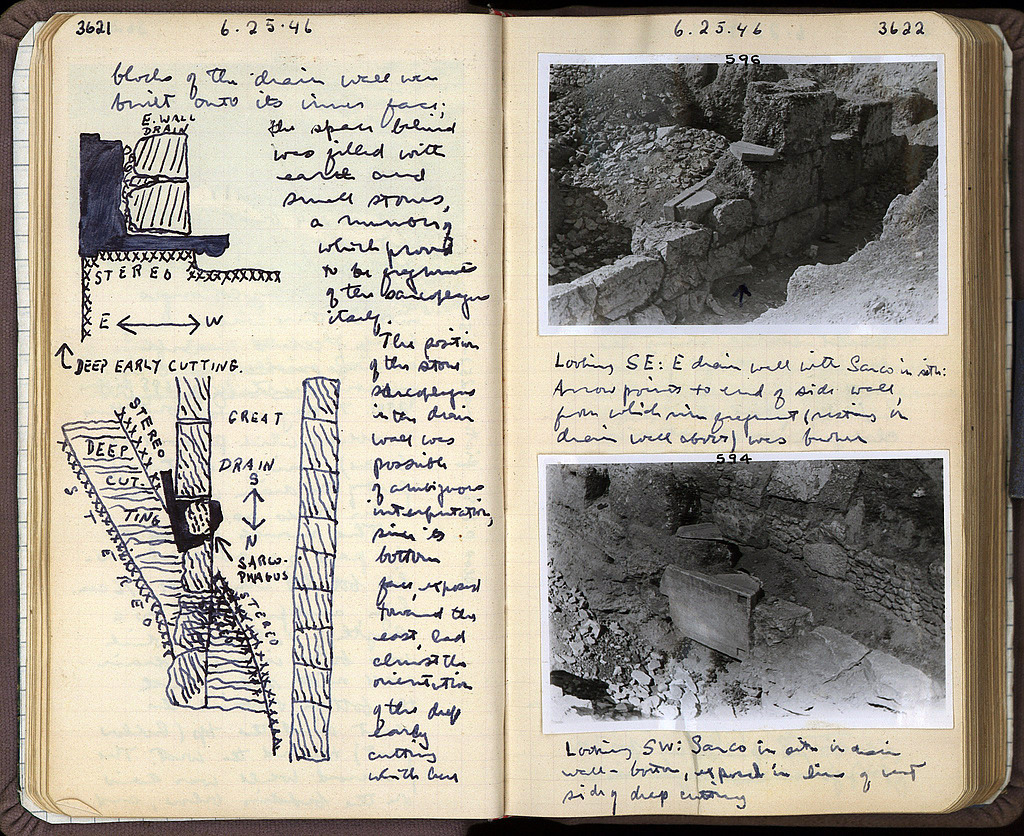 3621
6.25.46
blocks of the drain wall were
built onto its inner face;
the space behind
was filled with
earth and
small stones,
a number of
which proved
to be fragments
of the sarcophagus
itself.
E. WALL
DRAIN
STEREO
E W
DEEP EARLY CUTTING.
The position
of the stone
sarcophagus
in the drain
wall was
possible
of ambiguous
interpretation,
since its
bottom
face, exposed
toward the
east, had
almost the
orientation
of the deep
early
cutting
which
STEREO
DEEP
CUT-
TING
STEREO
GREAT
DRAIN
S
N
SARCO-
PHAGUS
STEREO
6.25.46
3622
596
Looking SE: E drain wall with Sarco in situ:
Arrow points to end of side wall,
from which rim fragment (resting on
drain wall above) was broken
594
Looking SW: Sarco in situ in drain
wall - bottom, exposed in line of west
side of deep cutting